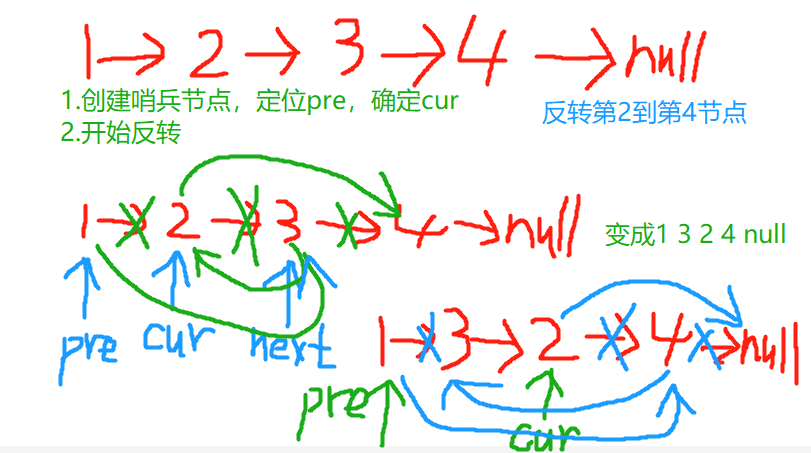 1→2→3→4→null
1.创建哨兵节点，定位pre，确定cur
反转第2到第4节点
2.开始反转
1→2→3→4→null
变成1 3 2 4 null
pre cur next
1→3→2→4→null
pre cur